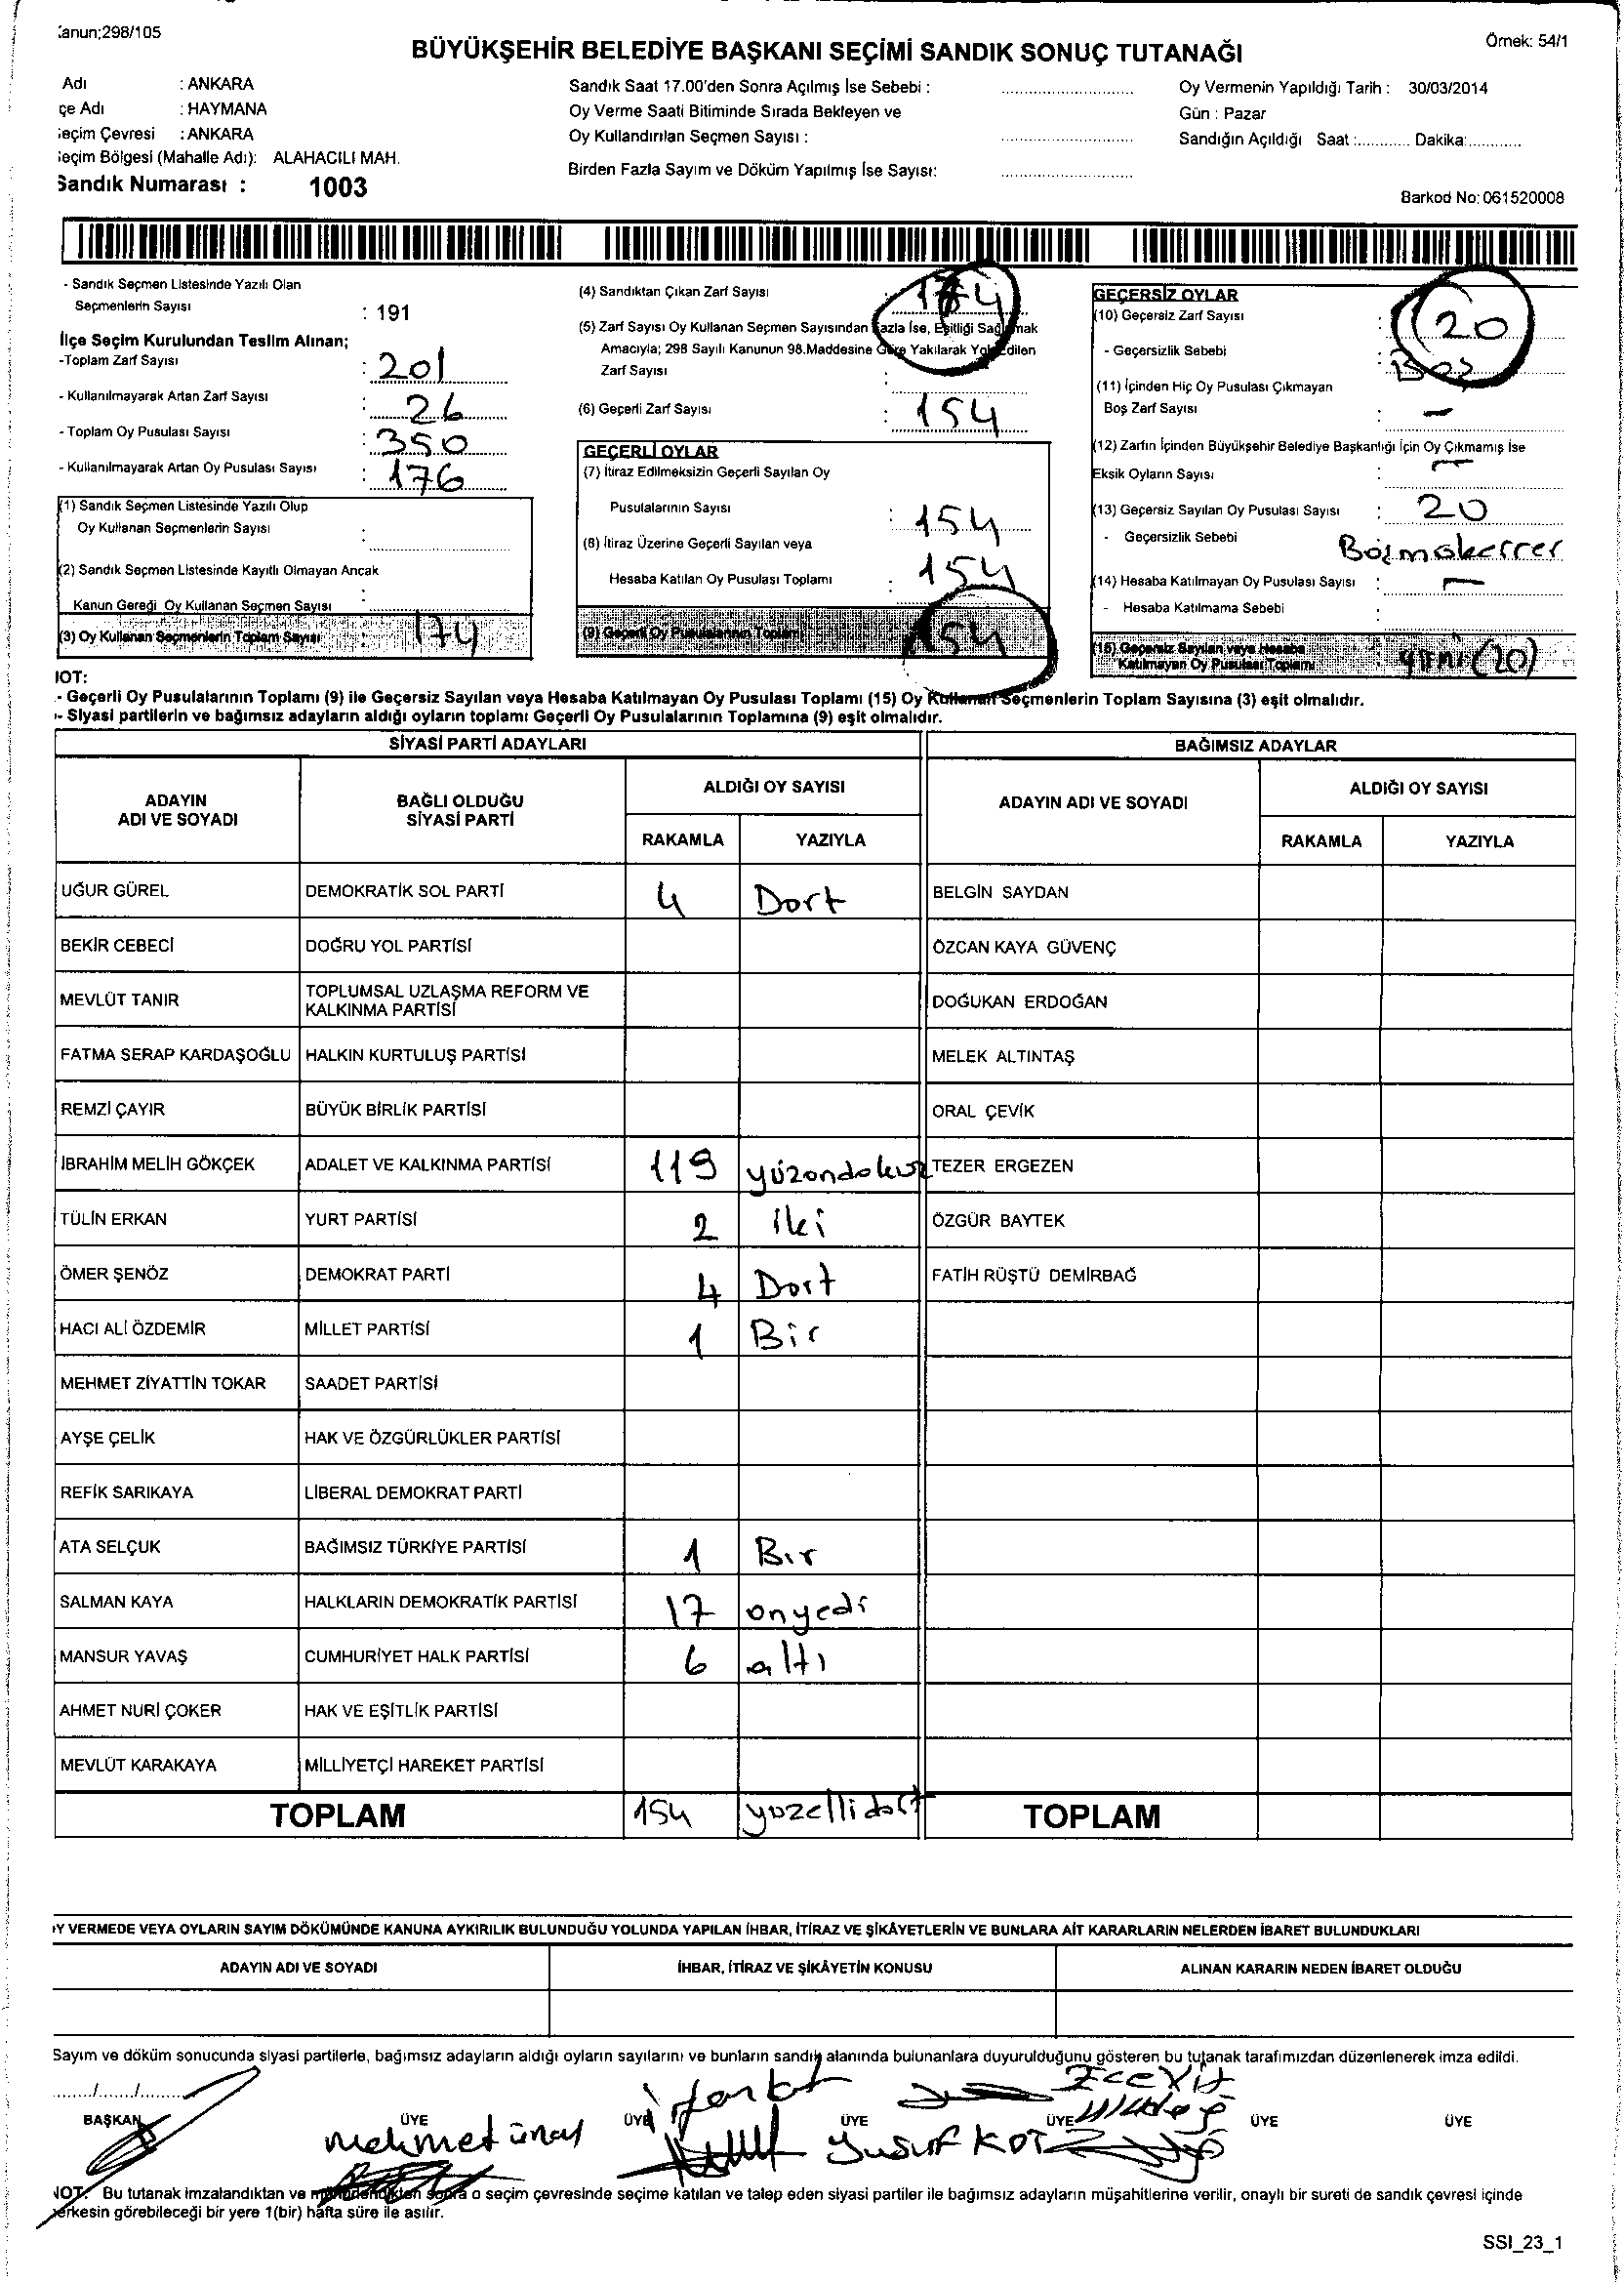 Kanun;298/105
Örnek: 54/1
BÜYÜKŞEHİR BELEDİYE BAŞKANI SEÇİMİ SANDIK SONUÇ TUTANAĞI
Adı : ANKARA
çe Adı : HAYMANA
eçim Çevresi : ANKARA
eçim Bölgesi (Mahalle Adı): ALAHACILI MAH.
Sandık Numarası : 1003
Sandık Saat 17.00'den Sonra Açılmış İse Sebebi :
Oy Verme Saati Bitiminde Sırada Bekleyen ve
Oy Kullandırılan Seçmen Sayısı :
Birden Fazla Sayım ve Döküm Yapılmış İse Sayısı:
Oy Vermenin Yapıldığı Tarih : 30/03/2014
Gün : Pazar
Sandığın Açıldığı Saat :............ Dakika:............
Barkod No: 061520008
- Sandık Seçmen Listesinde Yazılı Olan
Seçmenlerin Sayısı : 191
İlçe Seçim Kurulundan Teslim Alınan;
-Toplam Zarf Sayısı : 201
- Kullanılmayarak Artan Zarf Sayısı : 26
- Toplam Oy Pusulası Sayısı : 350
- Kullanılmayarak Artan Oy Pusulası Sayısı : 176
(1) Sandık Seçmen Listesinde Yazılı Olup
Oy Kullanan Seçmenlerin Sayısı :
(2) Sandık Seçmen Listesinde Kayıtlı Olmayan Ancak
Kanun Gereği Oy Kullanan Seçmen Sayısı :
(3) Oy Kullanan Seçmenlerin Toplam Sayısı : 174
(4) Sandıktan Çıkan Zarf Sayısı 174
(5) Zarf Sayısı Oy Kullanan Seçmen Sayısından Fazla İse, Eşitliği Sağlamak
Amacıyla; 298 Sayılı Kanunun 98.Maddesine Göre Yakılarak Yok Edilen
Zarf Sayısı :
(6) Geçerli Zarf Sayısı : 154
GEÇERLİ OYLAR
(7) İtiraz Edilmeksizin Geçerli Sayılan Oy
Pusulalarının Sayısı : 154
(8) İtiraz Üzerine Geçerli Sayılan veya
Hesaba Katılan Oy Pusulası Toplamı : 154
(9) Geçerli Oy Pusulalarının Toplamı 154
GEÇERSİZ OYLAR
(10) Geçersiz Zarf Sayısı : 20
- Geçersizlik Sebebi : Boş
(11) İçinden Hiç Oy Pusulası Çıkmayan
Boş Zarf Sayısı : -
(12) Zarfın İçinden Büyükşehir Belediye Başkanlığı İçin Oy Çıkmamış İse
Eksik Oyların Sayısı : -
(13) Geçersiz Sayılan Oy Pusulası Sayısı : 20
- Geçersizlik Sebebi
(14) Hesaba Katılmayan Oy Pusulası Sayısı : -
- Hesaba Katılmama Sebebi :
(15) Geçersiz Sayılan veya Hesaba
Katılmayan Oy Pusulası Toplamı : yirmi (20)
NOT:
- Geçerli Oy Pusulalarının Toplamı (9) ile Geçersiz Sayılan veya Hesaba Katılmayan Oy Pusulası Toplamı (15) Oy Kullanan Seçmenlerin Toplam Sayısına (3) eşit olmalıdır.
- Siyasi partilerin ve bağımsız adayların aldığı oyların toplamı Geçerli Oy Pusulalarının Toplamına (9) eşit olmalıdır.
SİYASİ PARTİ ADAYLARI BAĞIMSIZ ADAYLAR
ADAYIN ADI VE SOYADI BAĞLI OLDUĞU SİYASİ PARTİ ALDIĞI OY SAYISI ADAYIN ADI VE SOYADI ALDIĞI OY SAYISI
RAKAMLA YAZIYLA RAKAMLA YAZIYLA
UĞUR GÜREL DEMOKRATİK SOL PARTİ 4 Dort BELGİN SAYDAN
BEKİR CEBECİ DOĞRU YOL PARTİSİ ÖZCAN KAYA GÜVENÇ
MEVLÜT TANIR TOPLUMSAL UZLAŞMA REFORM VE KALKINMA PARTİSİ DOĞUKAN ERDOĞAN
FATMA SERAP KARDAŞOĞLU HALKIN KURTULUŞ PARTİSİ MELEK ALTINTAŞ
REMZİ ÇAYIR BÜYÜK BİRLİK PARTİSİ ORAL ÇEVİK
İBRAHİM MELİH GÖKÇEK ADALET VE KALKINMA PARTİSİ 119 yüzondokuz TEZER ERGEZEN
TÜLİN ERKAN YURT PARTİSİ 2 iki ÖZGÜR BAYTEK
ÖMER ŞENÖZ DEMOKRAT PARTİ 4 Dort FATİH RÜŞTÜ DEMİRBAĞ
HACI ALİ ÖZDEMİR MİLLET PARTİSİ 1 Bir
MEHMET ZİYATTİN TOKAR SAADET PARTİSİ
AYŞE ÇELİK HAK VE ÖZGÜRLÜKLER PARTİSİ
REFİK SARIKAYA LİBERAL DEMOKRAT PARTİ
ATA SELÇUK BAĞIMSIZ TÜRKİYE PARTİSİ 1 Bır
SALMAN KAYA HALKLARIN DEMOKRATİK PARTİSİ 17 onyedi
MANSUR YAVAŞ CUMHURİYET HALK PARTİSİ 6 altı
AHMET NURİ ÇOKER HAK VE EŞİTLİK PARTİSİ
MEVLÜT KARAKAYA MİLLİYETÇİ HAREKET PARTİSİ
TOPLAM 154 yuzellidört TOPLAM
OY VERMEDE VEYA OYLARIN SAYIM DÖKÜMÜNDE KANUNA AYKIRILIK BULUNDUĞU YOLUNDA YAPILAN İHBAR, İTİRAZ VE ŞİKÂYETLERİN VE BUNLARA AİT KARARLARIN NELERDEN İBARET BULUNDUKLARI
ADAYIN ADI VE SOYADI İHBAR, İTİRAZ VE ŞİKÂYETİN KONUSU ALINAN KARARIN NEDEN İBARET OLDUĞU
Sayım ve döküm sonucunda siyasi partilerle, bağımsız adayların aldığı oyların sayılarını ve bunların sandık alanında bulunanlara duyurulduğunu gösteren bu tutanak tarafımızdan düzenlenerek imza edildi.
......../......./.........
BAŞKAN ÜYE ÜYE ÜYE ÜYE ÜYE ÜYE
mehmet ünal Yusuf KOT
NOT: Bu tutanak imzalandıktan ve mühürlendikten sonra o seçim çevresinde seçime katılan ve talep eden siyasi partiler ile bağımsız adayların müşahitlerine verilir, onaylı bir sureti de sandık çevresi içinde
herkesin görebileceği bir yere 1(bir) hafta süre ile asılır.
SSI_23_1